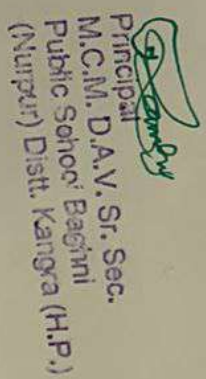 Principal
M.C.M. D.A.V. Sr. Sec.
Public School Baghni
(Nurpur) Distt. Kangra (H.P.)